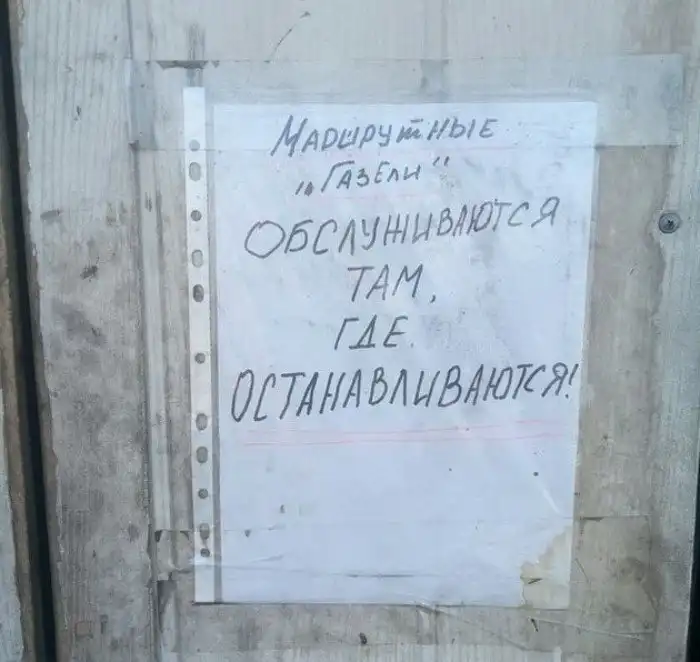 Маршрутные
„Газели“
Обслуживаются
там,
где
останавливаются!